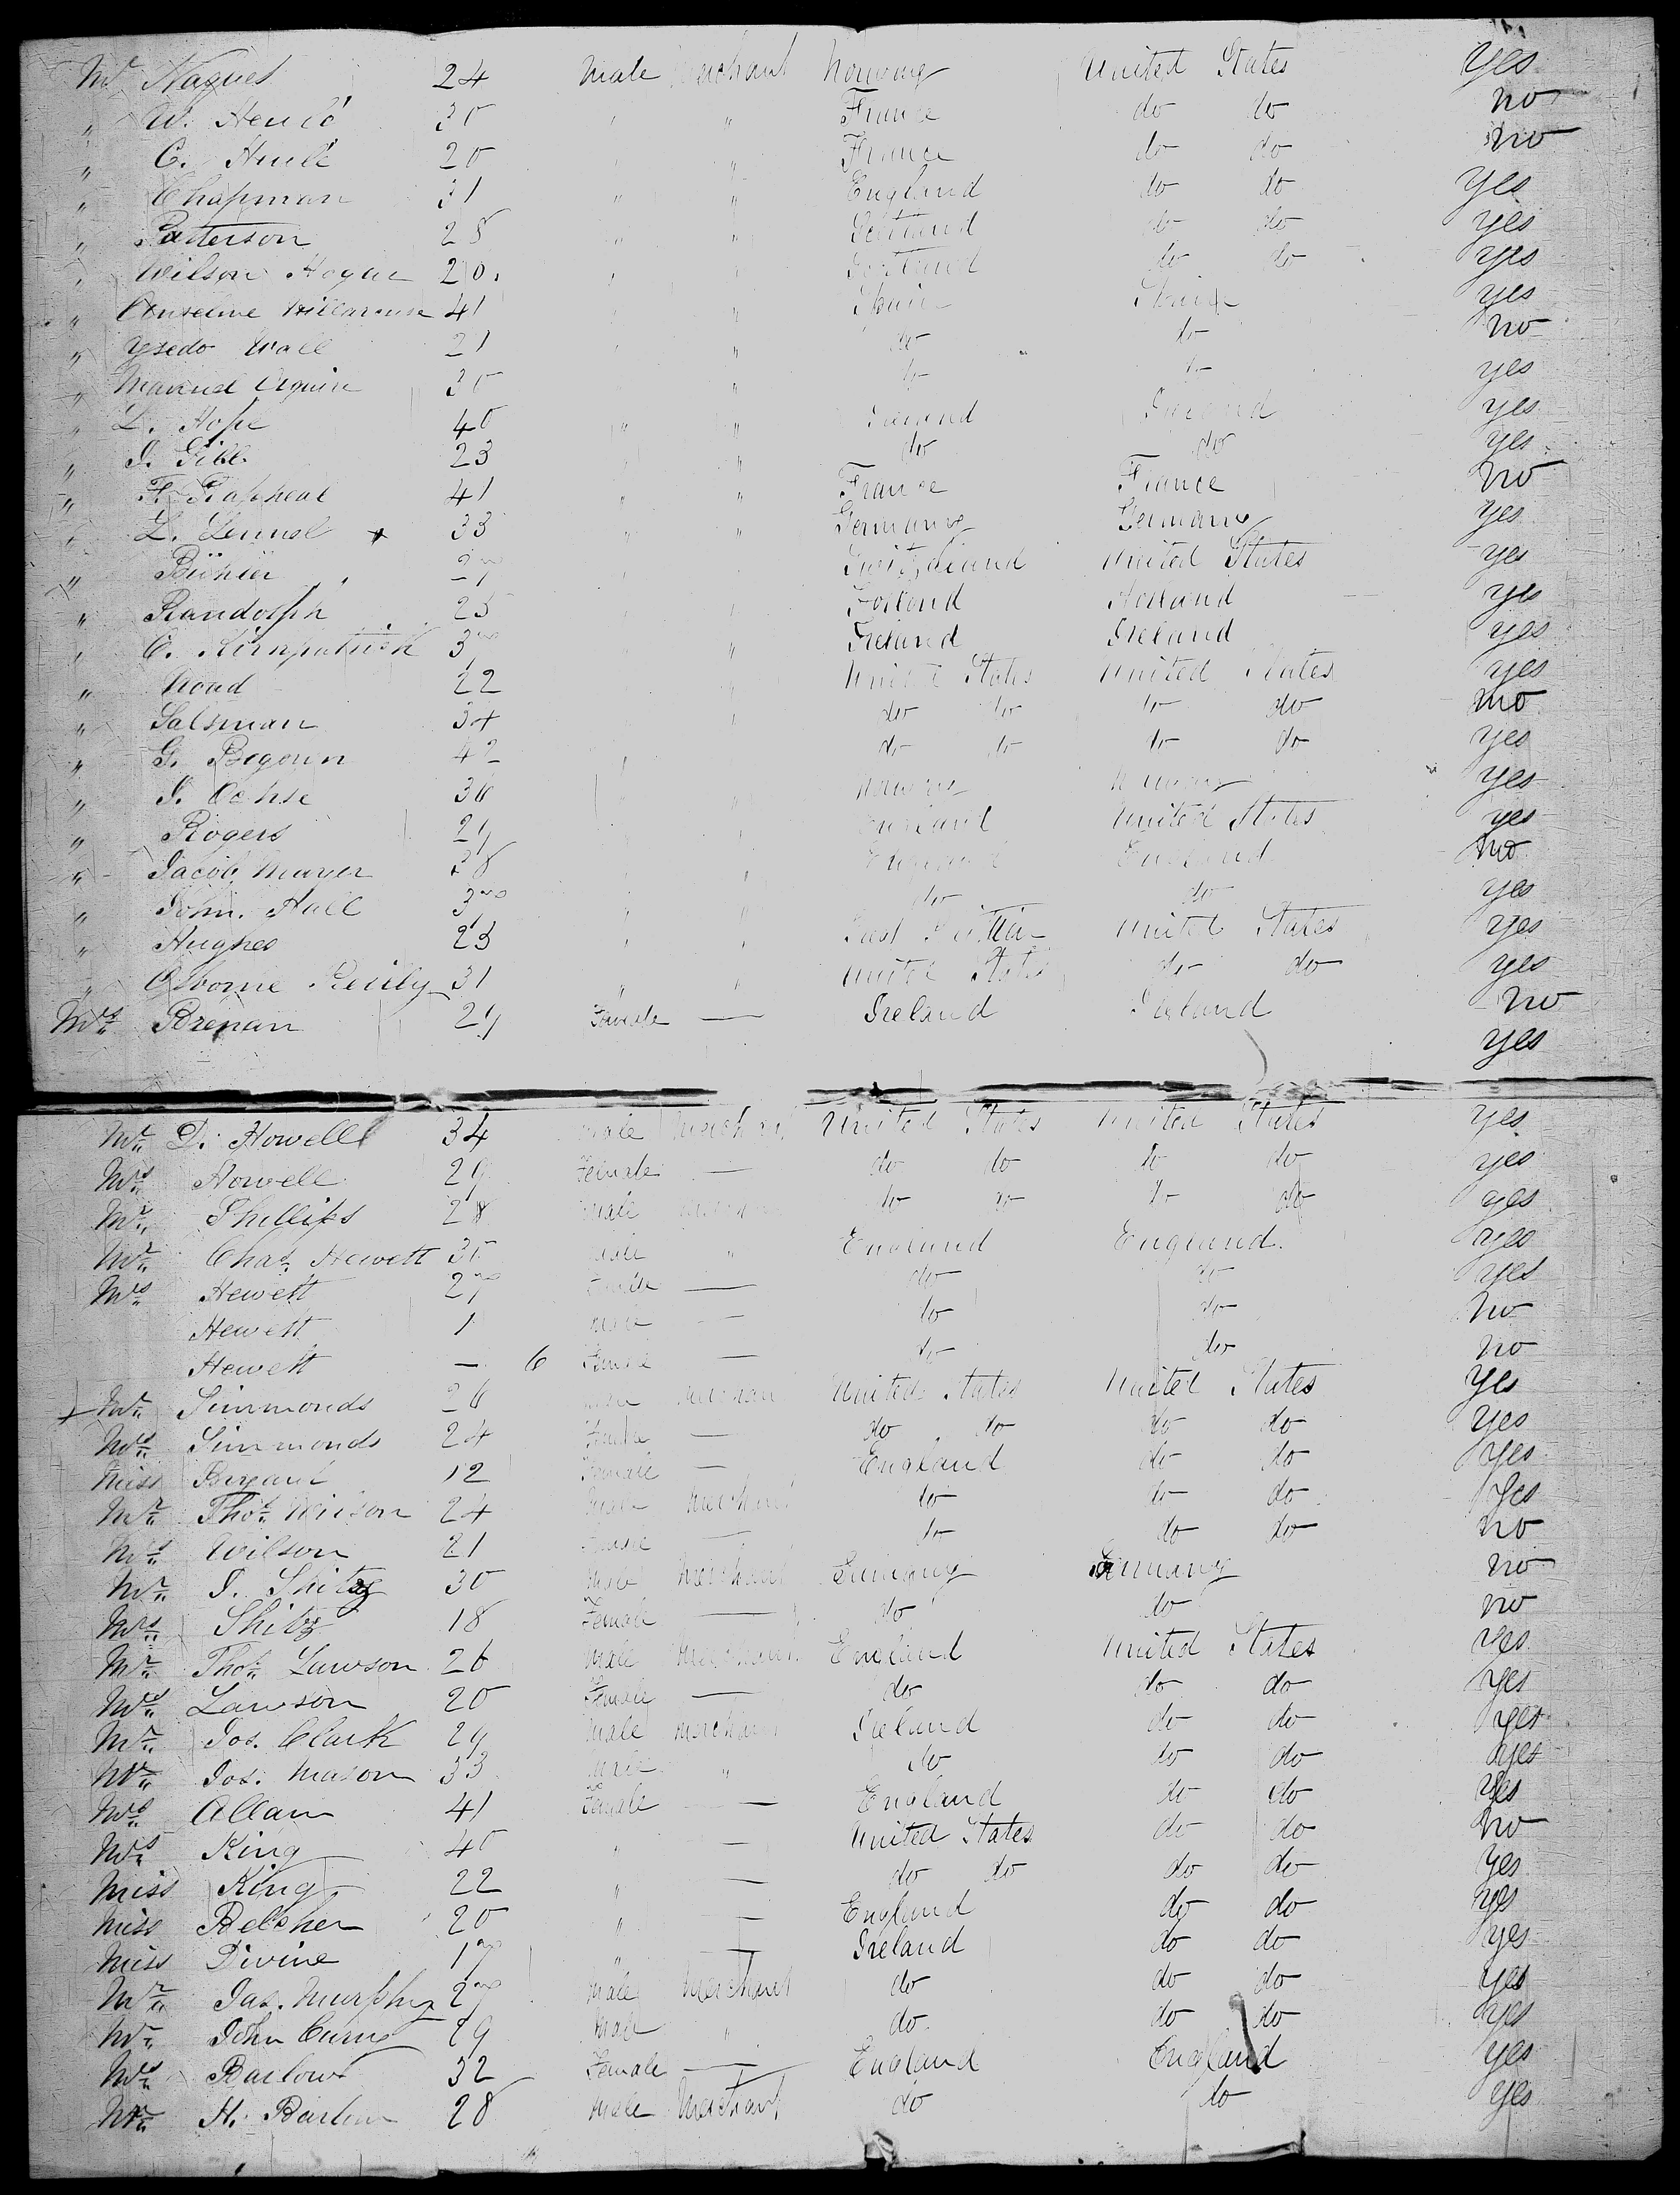 Mr Hagues 24 Male Merchant Norway United States yes
" W. 30 " " France do do no
" C. 20 " " France do do no
" Chapman 31 " " England do do yes
" Patterson 28 " " Scotland do do yes
" Wilson 20 " " do do yes
" Anselme 41 " " Spain Spain yes
" Ysedo Wall 21 " " do do no
" Manuel 30 " do do yes
" L. Hope 40 " " Ireland Ireland yes
" J. Gill 23 " " do do yes
" F. Rapheal 41 " " France France no
" L. 33 " " Germany Germany yes
" Bühler 27 Switzerland United States yes
" Randolph 25 " Holland Holland yes
" C. Kirkpatrick 37 " Ireland Ireland yes
" Hoad 22 " United States United States yes
" Salsman 34 " do do do do no
" G. Begoun 42 do do do do yes
" J. Ochse 36 yes
" Rogers 29 " England United States yes
" Jacob Mayer 38 " England England no
" John Hall 37 " " do do yes
" Hughes 23 " " United States yes
" Osborne Reilly 31 " " United States do do yes
Mrs Brenan 29 Female — Ireland Ireland no
yes
Mr D. Howell 34 Male Merchant United States United States yes
Mrs Howell 29 Female — do do do do yes
Mr Phillips 28 Male Merchant do do do do yes
Mr Chas. Hewett 35 Male " England England yes
Mrs Hewett 27 Female — do do yes
Hewett 1 Male — do do no
Hewett — 6 Female — do do no
Mr Simmonds 26 Male Merchant United States United States yes
Mrs Simmonds 24 Female — do do do do yes
Miss Bryant 12 Female — England do do yes
Mr Thos. Wilson 24 Male Merchant do do do yes
Mrs Wilson 21 Female — do do do no
Mr J. Shitz 30 Male Merchant Germany Germany no
Mrs Shitz 18 Female — do do no
Mr Thos. Lawson 26 Male Merchant England United States yes
Mrs Lawson 20 Female — do do do yes
Mr Jos. Clark 29 Male Merchant Ireland do do yes
Mr Jos. Mason 33 Male " do do do yes
Mrs Allan 41 Female — England do do yes
Mrs King 40 " — United States do do no
Miss King 22 " — do do do do yes
Miss Belcher 20 " — England do do yes
Miss Divine 17 " — Ireland do do yes
Mr Jas. Murphy 27 Male Merchant do do do yes
Mr John 29 Male " do do do yes
Mrs Barlow 32 Female — England England yes
Mr H. Barlow 28 Male Merchant do do yes